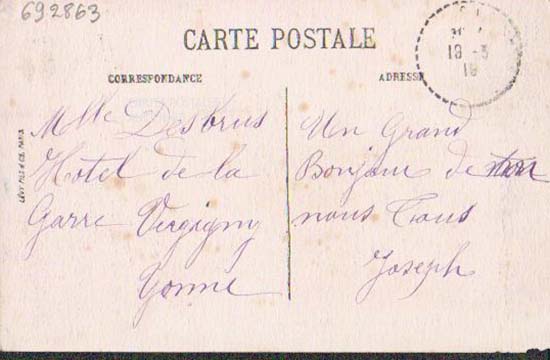 692863
CARTE POSTALE
CORRESPONDANCE
ADRESSE
18 - 3
LÉVY FILS & CIE, PARIS
Mlle Desbrus
Hotel de la
Garre Vergigny
Yonne
Un Grand
Bonjour de
nous Tous
Joseph